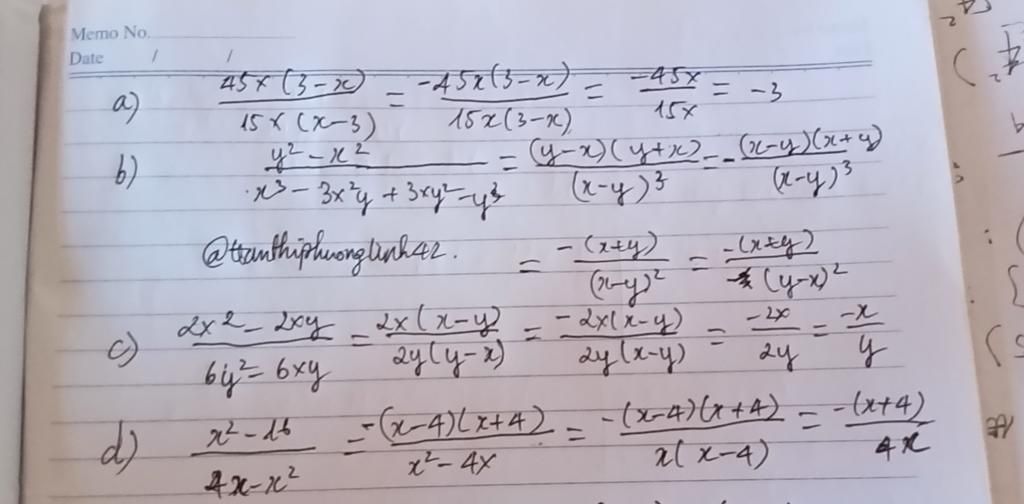 Memo No.
Date / /
a) 45x(3-x)/15x(x-3) = -45x(3-x)/15x(3-x) = -45x/15x = -3
b) y²-x²/x³-3x²y+3xy²-y³ = (y-x)(y+x)/(x-y)³ = -(x-y)(x+y)/(x-y)³
@tranthiphuonglinh42. = -(x+y)/(x-y)² = -(x+y)/(y-x)²
c) 2x²-2xy/6y²-6xy = 2x(x-y)/2y(y-x) = -2x(x-y)/2y(x-y) = -2x/2y = -x/y
d) x²-16/4x-x² = -(x-4)(x+4)/x²-4x = -(x-4)(x+4)/x(x-4) = -(x+4)/4x